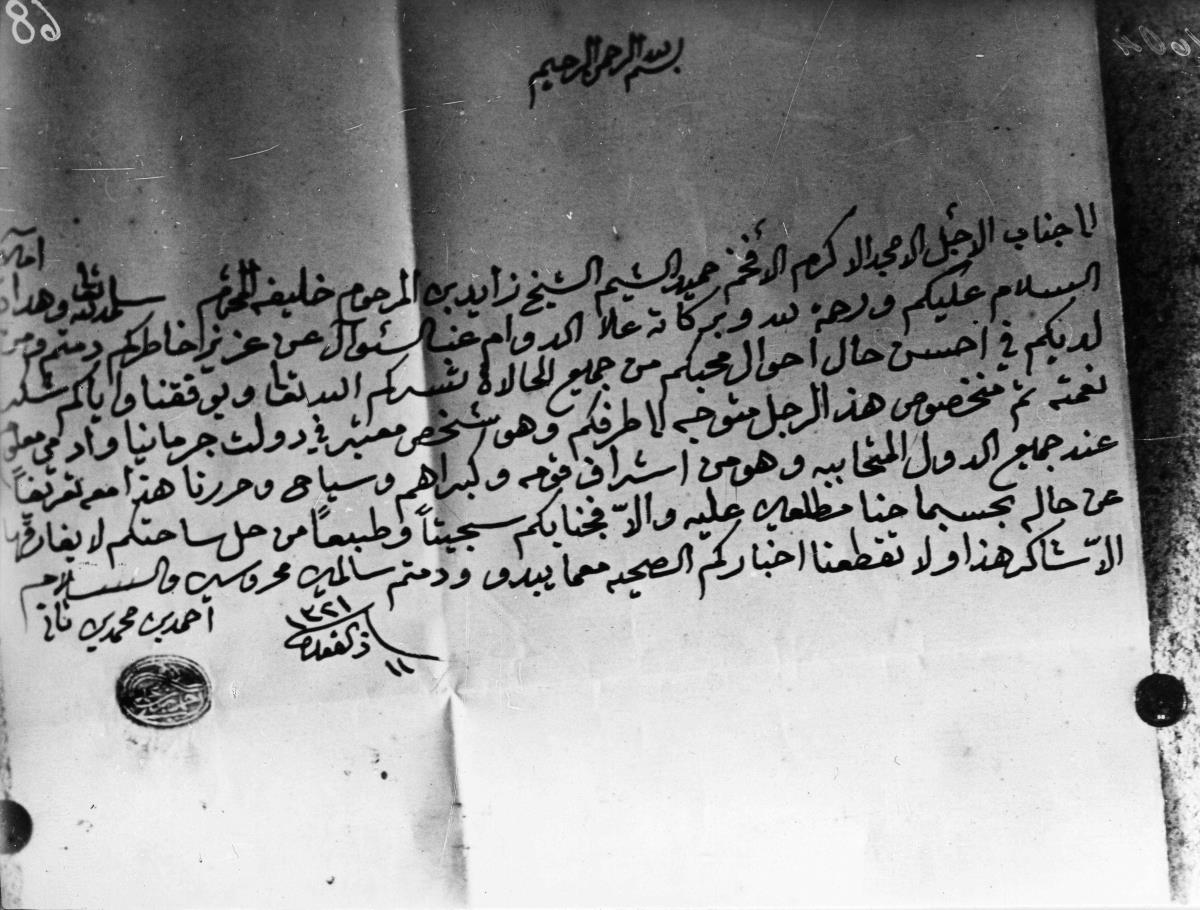 بسم الله الرحمن الرحيم
الا جناب الاجل الامجد الاكرم الأفخم حميد الشيم الشيخ زايد بن المرحوم خليفه المحترم سلمه الله تعا وهداه امين
السلام عليكم ورحمة الله وبركاته علا الدوام عنا لسئوال عن عزيز خاطركم دمتم ومن
لديكم في احسن حال احوال محبكم من جميع الحالاة تسركم الله تعا ويوفقنا واياكم شكر
نعمته ثم منخصوص هذ الرجل متوجه الا طرفكم وهو شخص معتبر في دولت جرمانيا وادمي معلوم
عند جميع الدول المتحاببه وهو من اشراف قومه وكبراهم وسياح وحررنا هذا معه تعريفاً
عن حاله بحسبما حنا مطلعين عليه والاّ فجنابكم سجيتاً وطبيعاً من حل ساحتكم لا يفارقها
الاّ شاكر هذا ولا تقطعنا اخباركم الصحيه معما يبدو ودمتم سالمين محروسين والسلام
أحمد بن محمد بن ثاني
١١ ذلقعده ١٣٢١
68